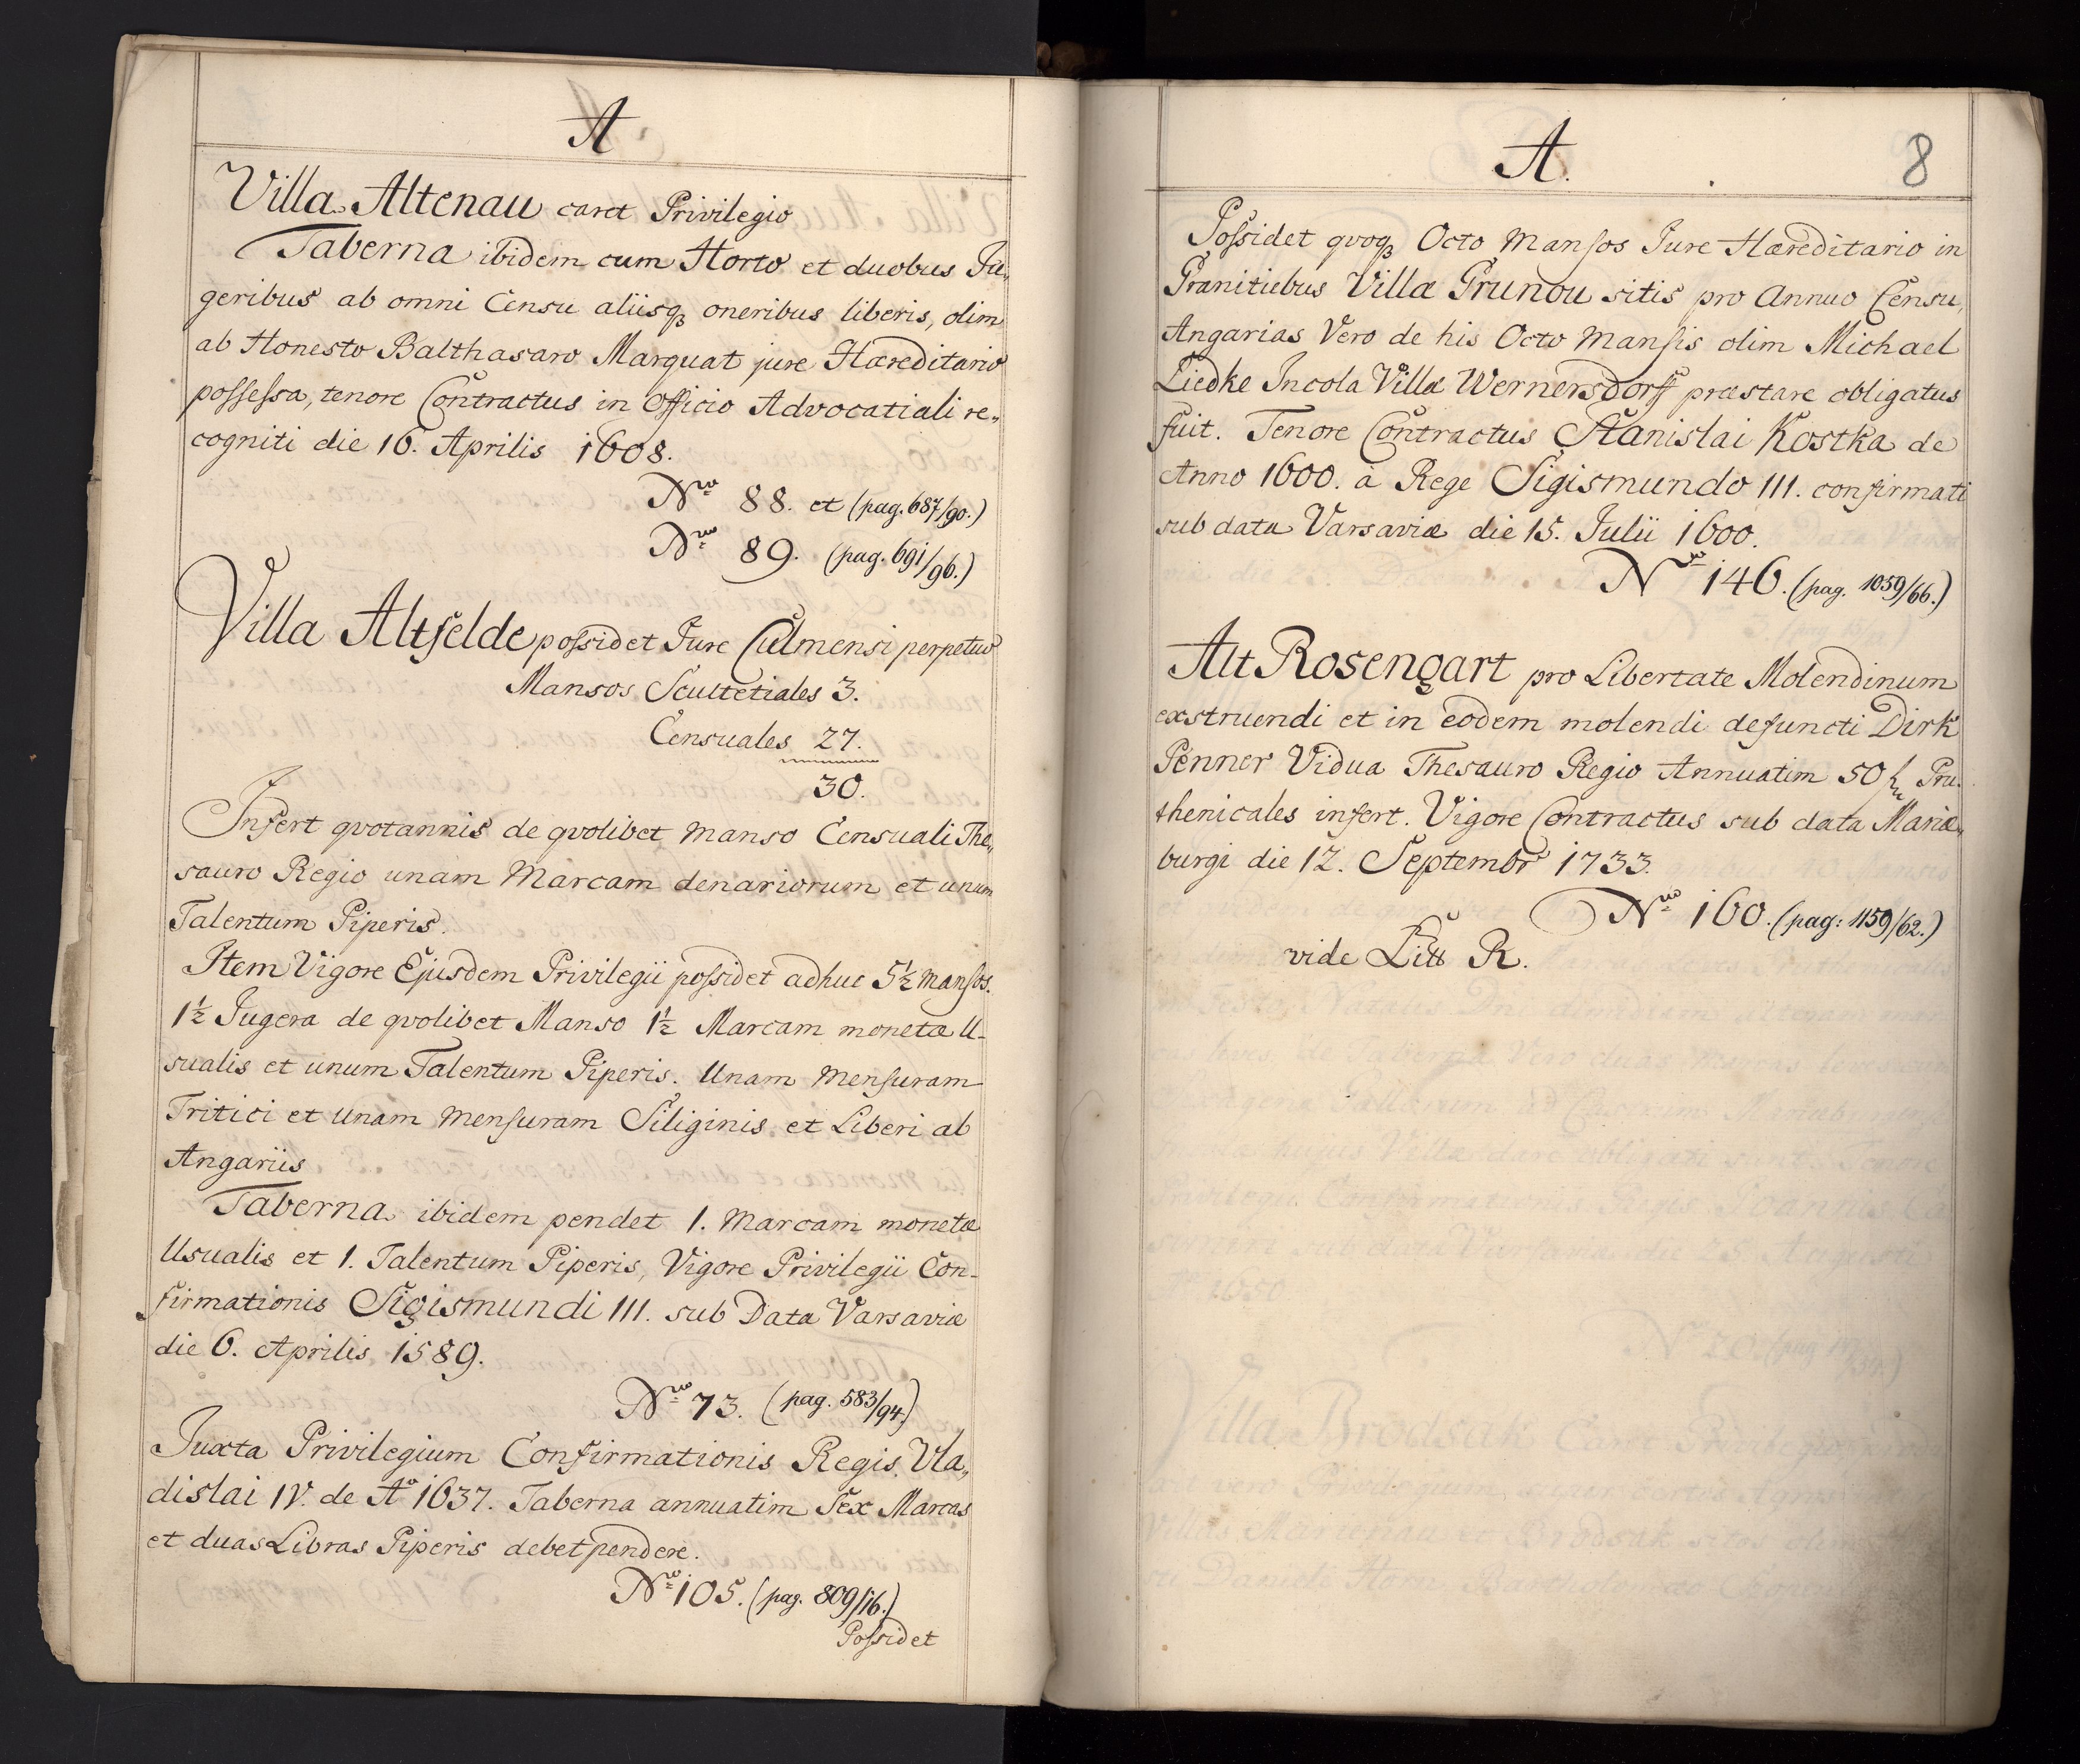 A
Villa Altenau caret Privilegio
Taberna ibidem cum Horto et duobus Ju„
geribus ab omni Censu aliisqꝫ oneribus liberis, olim
ab Honesto Balthasaro Marquat jure Hæreditario
possessa, tenore Contractus in Officio Advocatiali re„
cogniti die 16. Aprilis 1608.
Nro 88. et (pag. 687/90.)
Nro 89. (pag. 691/96.)
Villa Altfelde possidet Jure Culmensi perpetuo
Mansos Scultetiales 3.
Censuales 27.
30.
Infert qvotannis de qvolibet manso Censuali The„
sauro Regio unam Marcam denariorum et unum
Talentum Piperis.
Item Vigore Ejusdem Privilegii possidet adhuc 5½ mansos.
1½ Jugera de qvolibet Manso 1½ Marcam monetæ U-
sualis et unum Talentum Piperis. Unam mensuram
Tritici et unam mensuram Siliginis et Liberi ab
Angariis
Taberna ibidem pendet 1. marcam monetæ
Usualis et 1. Talentum Piperis, Vigore Privilegii Con-
firmationis Sigismundi III. sub Data Varsaviæ
die 6. Aprilis 1589.
Nro 73. (pag. 583/94.)
Juxta Privilegium Confirmationis Regis Vla„
dislai IV. de Ao 1637. Taberna annuatim Sex Marcas
et duas Libras Piperis debet pendere.
Nro 105. (pag. 809/16.)
Possidet
A.
8
Possidet qvoqꝫ Octo Mansos Jure Hæreditario in
Granitiebus Villæ Grunou sitis pro Annuo Censu,
Angarias Vero de his Octo Mansis olim Michael
Liedke Incola Villæ Wernersdorff præstare obligatus
fuit. Tenore Contractus Stanislai Kostka de
Anno 1600. à Rege Sigismundo III. confirmati
sub data Varsaviæ die 15. Julii 1600.
Nro 146. (pag. 1059/66.)
Alt Rosengart pro Libertate Molendinum
exstruendi et in eodem molendi defuncti Dirk
Penner Vidua Thesauro Regio Annuatim 50 Pru„
thenicales infert. Vigore Contractus sub data Mariæ„
burgi die 12. Septembr 1733.
Nro 160. (pag: 1159/62.)
vide Litt R.